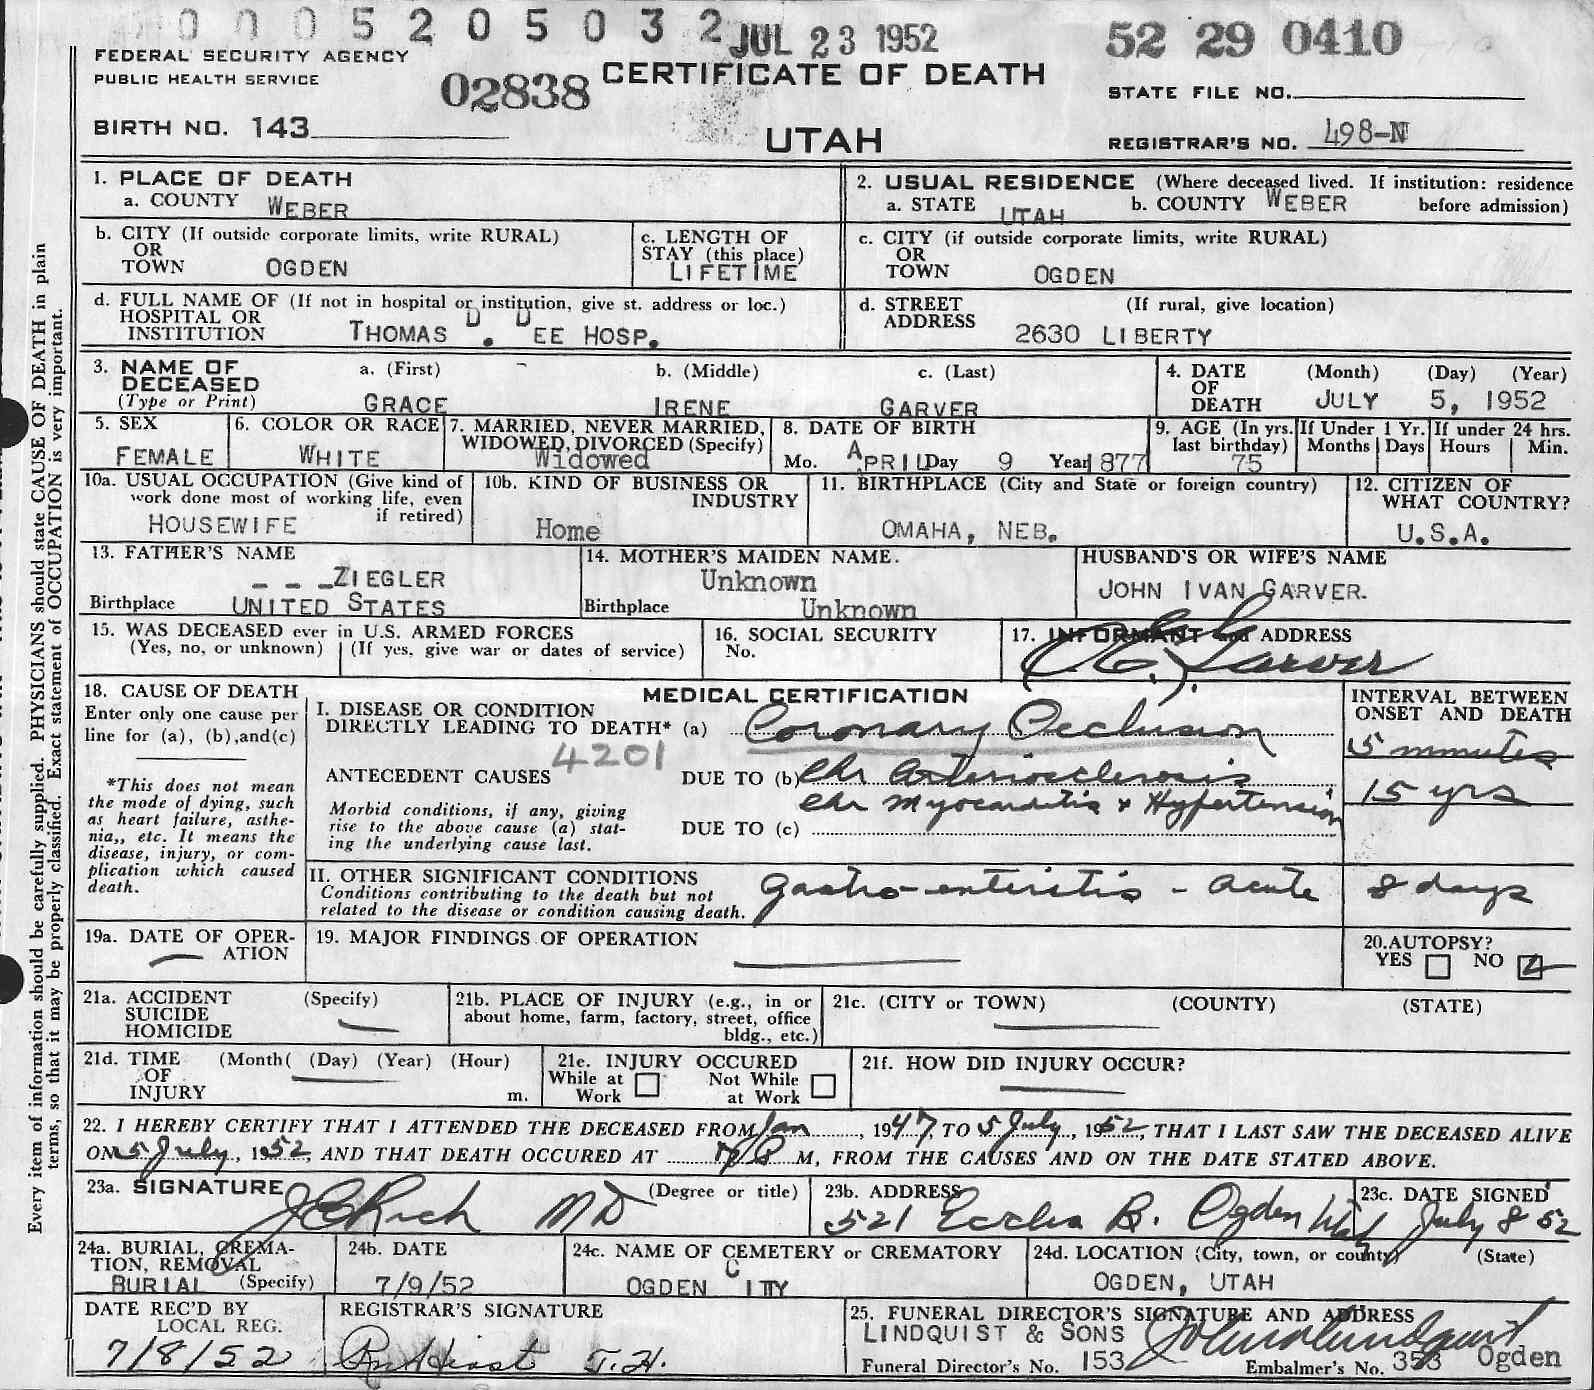 0005205032 JUL 23 1952 52 29 0410
FEDERAL SECURITY AGENCY
PUBLIC HEALTH SERVICE
02838 CERTIFICATE OF DEATH
STATE FILE NO.
BIRTH NO. 143
UTAH
REGISTRAR'S NO. 498-N
1. PLACE OF DEATH
a. COUNTY WEBER
2. USUAL RESIDENCE (Where deceased lived. If institution: residence
a. STATE UTAH b. COUNTY WEBER before admission)
b. CITY (If outside corporate limits, write RURAL)
OR
TOWN OGDEN
c. LENGTH OF
STAY (this place)
LIFETIME
c. CITY (if outside corporate limits, write RURAL)
OR
TOWN OGDEN
d. FULL NAME OF (If not in hospital or institution, give st. address or loc.)
HOSPITAL OR
INSTITUTION THOMAS D. DEE HOSP.
d. STREET (If rural, give location)
ADDRESS 2630 LIBERTY
3. NAME OF a. (First) b. (Middle) c. (Last)
DECEASED
(Type or Print) GRACE IRENE GARVER
4. DATE (Month) (Day) (Year)
OF
DEATH JULY 5, 1952
5. SEX
FEMALE
6. COLOR OR RACE
WHITE
7. MARRIED, NEVER MARRIED,
WIDOWED, DIVORCED (Specify)
Widowed
8. DATE OF BIRTH
Mo. APRIL Day 9 Year 1877
9. AGE (In yrs.
last birthday)
75
If Under 1 Yr.
Months Days
If under 24 hrs.
Hours Min.
10a. USUAL OCCUPATION (Give kind of
work done most of working life, even
if retired)
HOUSEWIFE
10b. KIND OF BUSINESS OR
INDUSTRY
Home
11. BIRTHPLACE (City and State or foreign country)
OMAHA, NEB.
12. CITIZEN OF
WHAT COUNTRY?
U.S.A.
13. FATHER'S NAME
- - -ZIEGLER
Birthplace UNITED STATES
14. MOTHER'S MAIDEN NAME.
Unknown
Birthplace Unknown
HUSBAND'S OR WIFE'S NAME
JOHN IVAN GARVER.
15. WAS DECEASED ever in U.S. ARMED FORCES
(Yes, no, or unknown) (If yes, give war or dates of service)
16. SOCIAL SECURITY
No.
17. INFORMANT and ADDRESS
Garver
18. CAUSE OF DEATH
Enter only one cause per
line for (a), (b),and(c)
*This does not mean
the mode of dying, such
as heart failure, asthe-
nia,, etc. It means the
disease, injury, or com-
plication which caused
death.
MEDICAL CERTIFICATION
I. DISEASE OR CONDITION
DIRECTLY LEADING TO DEATH* (a) Coronary Occlusion
4201
ANTECEDENT CAUSES DUE TO (b) Chr Arteriosclerosis
Chr Myocarditis & Hypertension
Morbid conditions, if any, giving
rise to the above cause (a) stat-
ing the underlying cause last.
DUE TO (c)
II. OTHER SIGNIFICANT CONDITIONS
Conditions contributing to the death but not
related to the disease or condition causing death.
gastro-enteritis - acute
INTERVAL BETWEEN
ONSET AND DEATH
5 minutes
15 yrs
8 days
19a. DATE OF OPER-
ATION
19. MAJOR FINDINGS OF OPERATION
20.AUTOPSY?
YES NO
21a. ACCIDENT (Specify)
SUICIDE
HOMICIDE
21b. PLACE OF INJURY (e.g., in or
about home, farm, factory, street, office
bldg., etc.)
21c. (CITY or TOWN) (COUNTY) (STATE)
21d. TIME (Month( (Day) (Year) (Hour)
OF
INJURY m.
21e. INJURY OCCURED
While at Not While
Work at Work
21f. HOW DID INJURY OCCUR?
22. I HEREBY CERTIFY THAT I ATTENDED THE DECEASED FROM Jan, 1947, TO 5 July, 1952, THAT I LAST SAW THE DECEASED ALIVE
ON 5 July, 1952, AND THAT DEATH OCCURED AT P M, FROM THE CAUSES AND ON THE DATE STATED ABOVE.
23a. SIGNATURE (Degree or title)
J E Rich MD
23b. ADDRESS
521 Eccles B. Ogden Utah
23c. DATE SIGNED
July 8 52
24a. BURIAL, CREMA-
TION, REMOVAL
BURIAL (Specify)
24b. DATE
7/9/52
24c. NAME OF CEMETERY or CREMATORY
OGDEN CITY
24d. LOCATION (City, town, or county) (State)
OGDEN, UTAH
DATE REC'D BY
LOCAL REG.
7/8/52
REGISTRAR'S SIGNATURE
25. FUNERAL DIRECTOR'S SIGNATURE AND ADDRESS
LINDQUIST & SONS
Funeral Director's No. 153 Embalmer's No. 353 Ogden
Every item of information should be carefully supplied. PHYSICIANS should state CAUSE OF DEATH in plain
terms, so that it may be properly classified. Exact statement of OCCUPATION is very important.